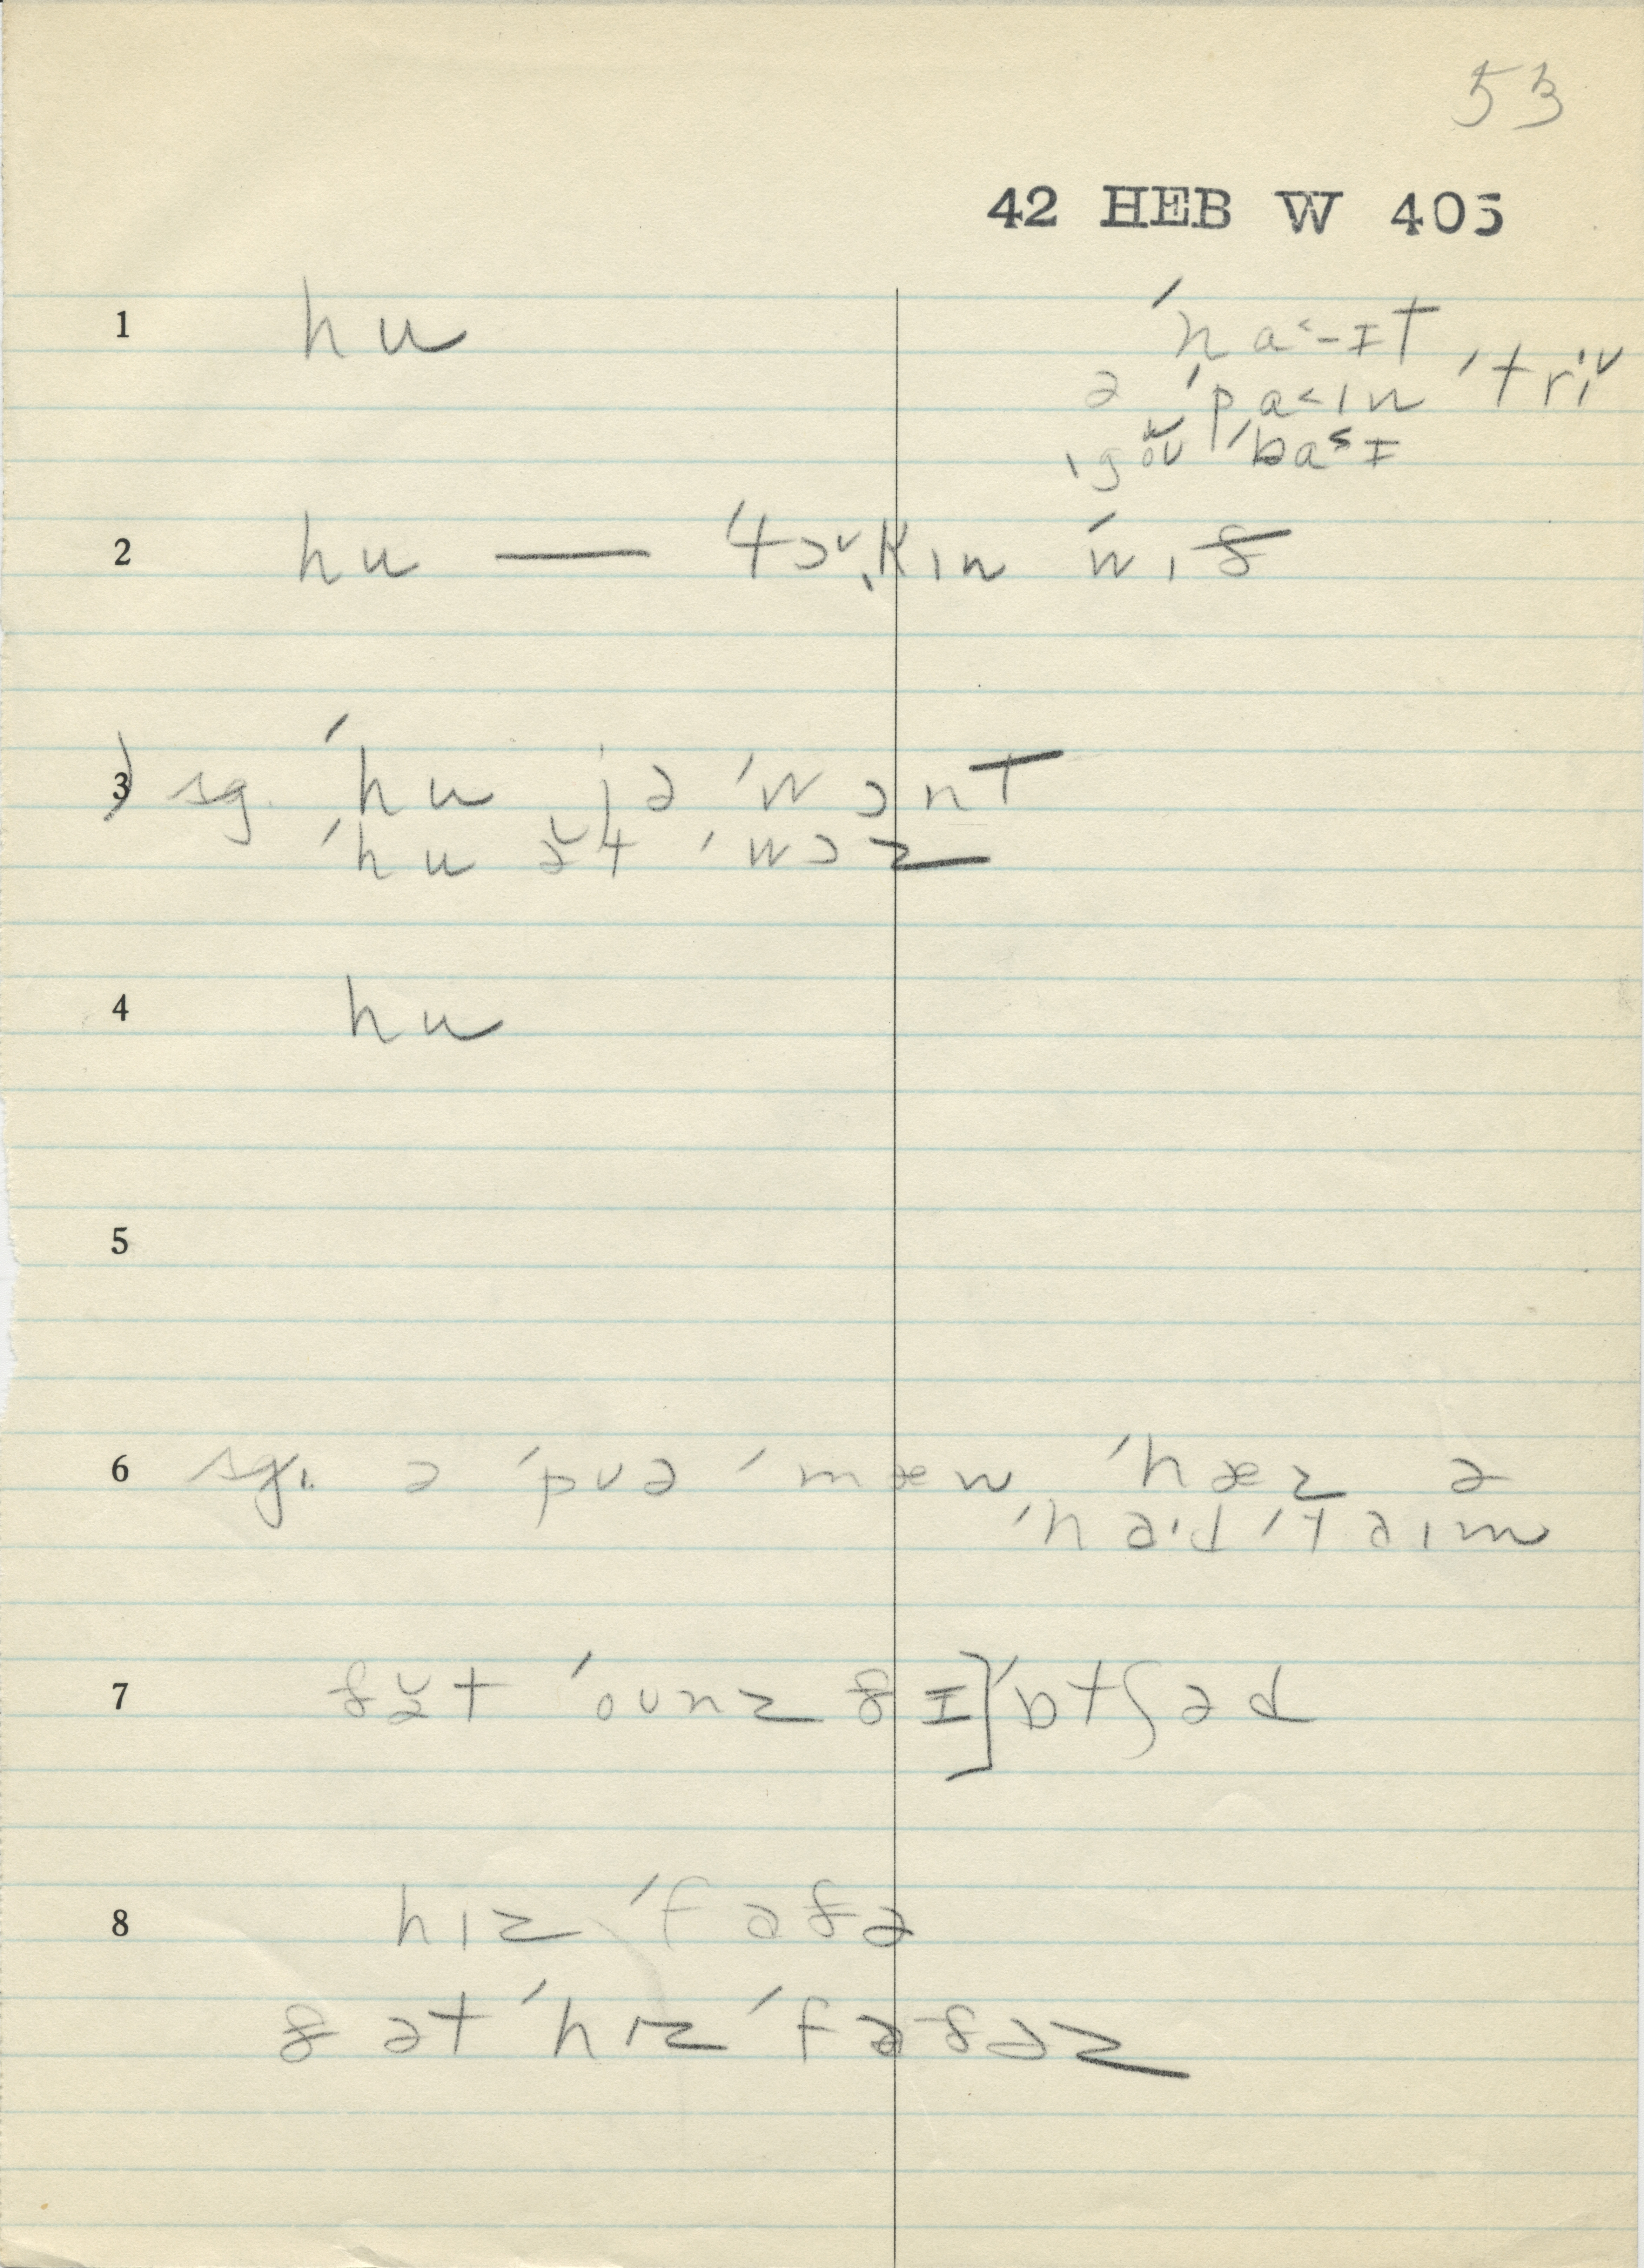 53
42 HEB W 405
1 hu
ˈna˂-ɪt
ə ˈpa˂ɪn ˈtri
ˌgoʊ ˈba˂ɪ
2 hu — ˈtɔˌkɪn wɪð
3) sg. ˈhu jə ˈwɔnt
ˈhu ət ˈwɔz
4 hu
5
6 sg. ə ˈpʊə ˈmæn ˈhæz ə
ˈhad ˈtaɪm
7 ðət ˈoʊnz ðɪ] ˈɔtʃəd
8 hɪz ˈfaðə
ðət ˈhɪz ˈfaðəz